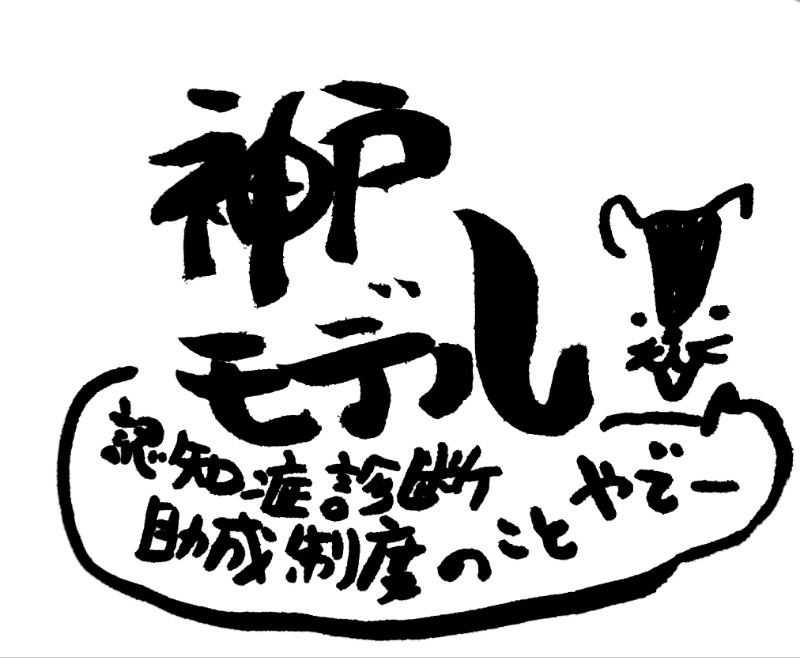 神戸
モデル
認知症診断
助成制度のことやでー